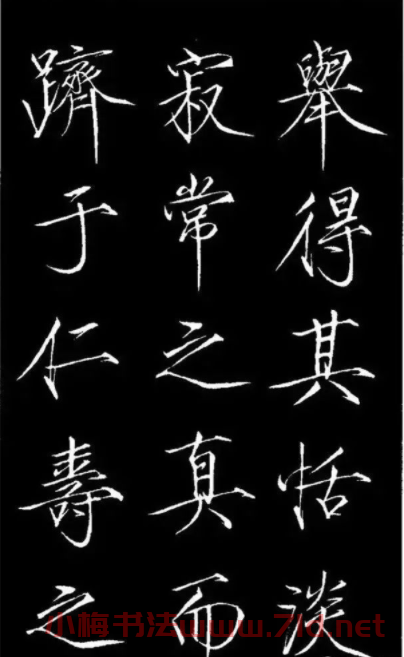 舉得其恬淡
寂常之真而
躋于仁壽之
小梅书法www.71d.net